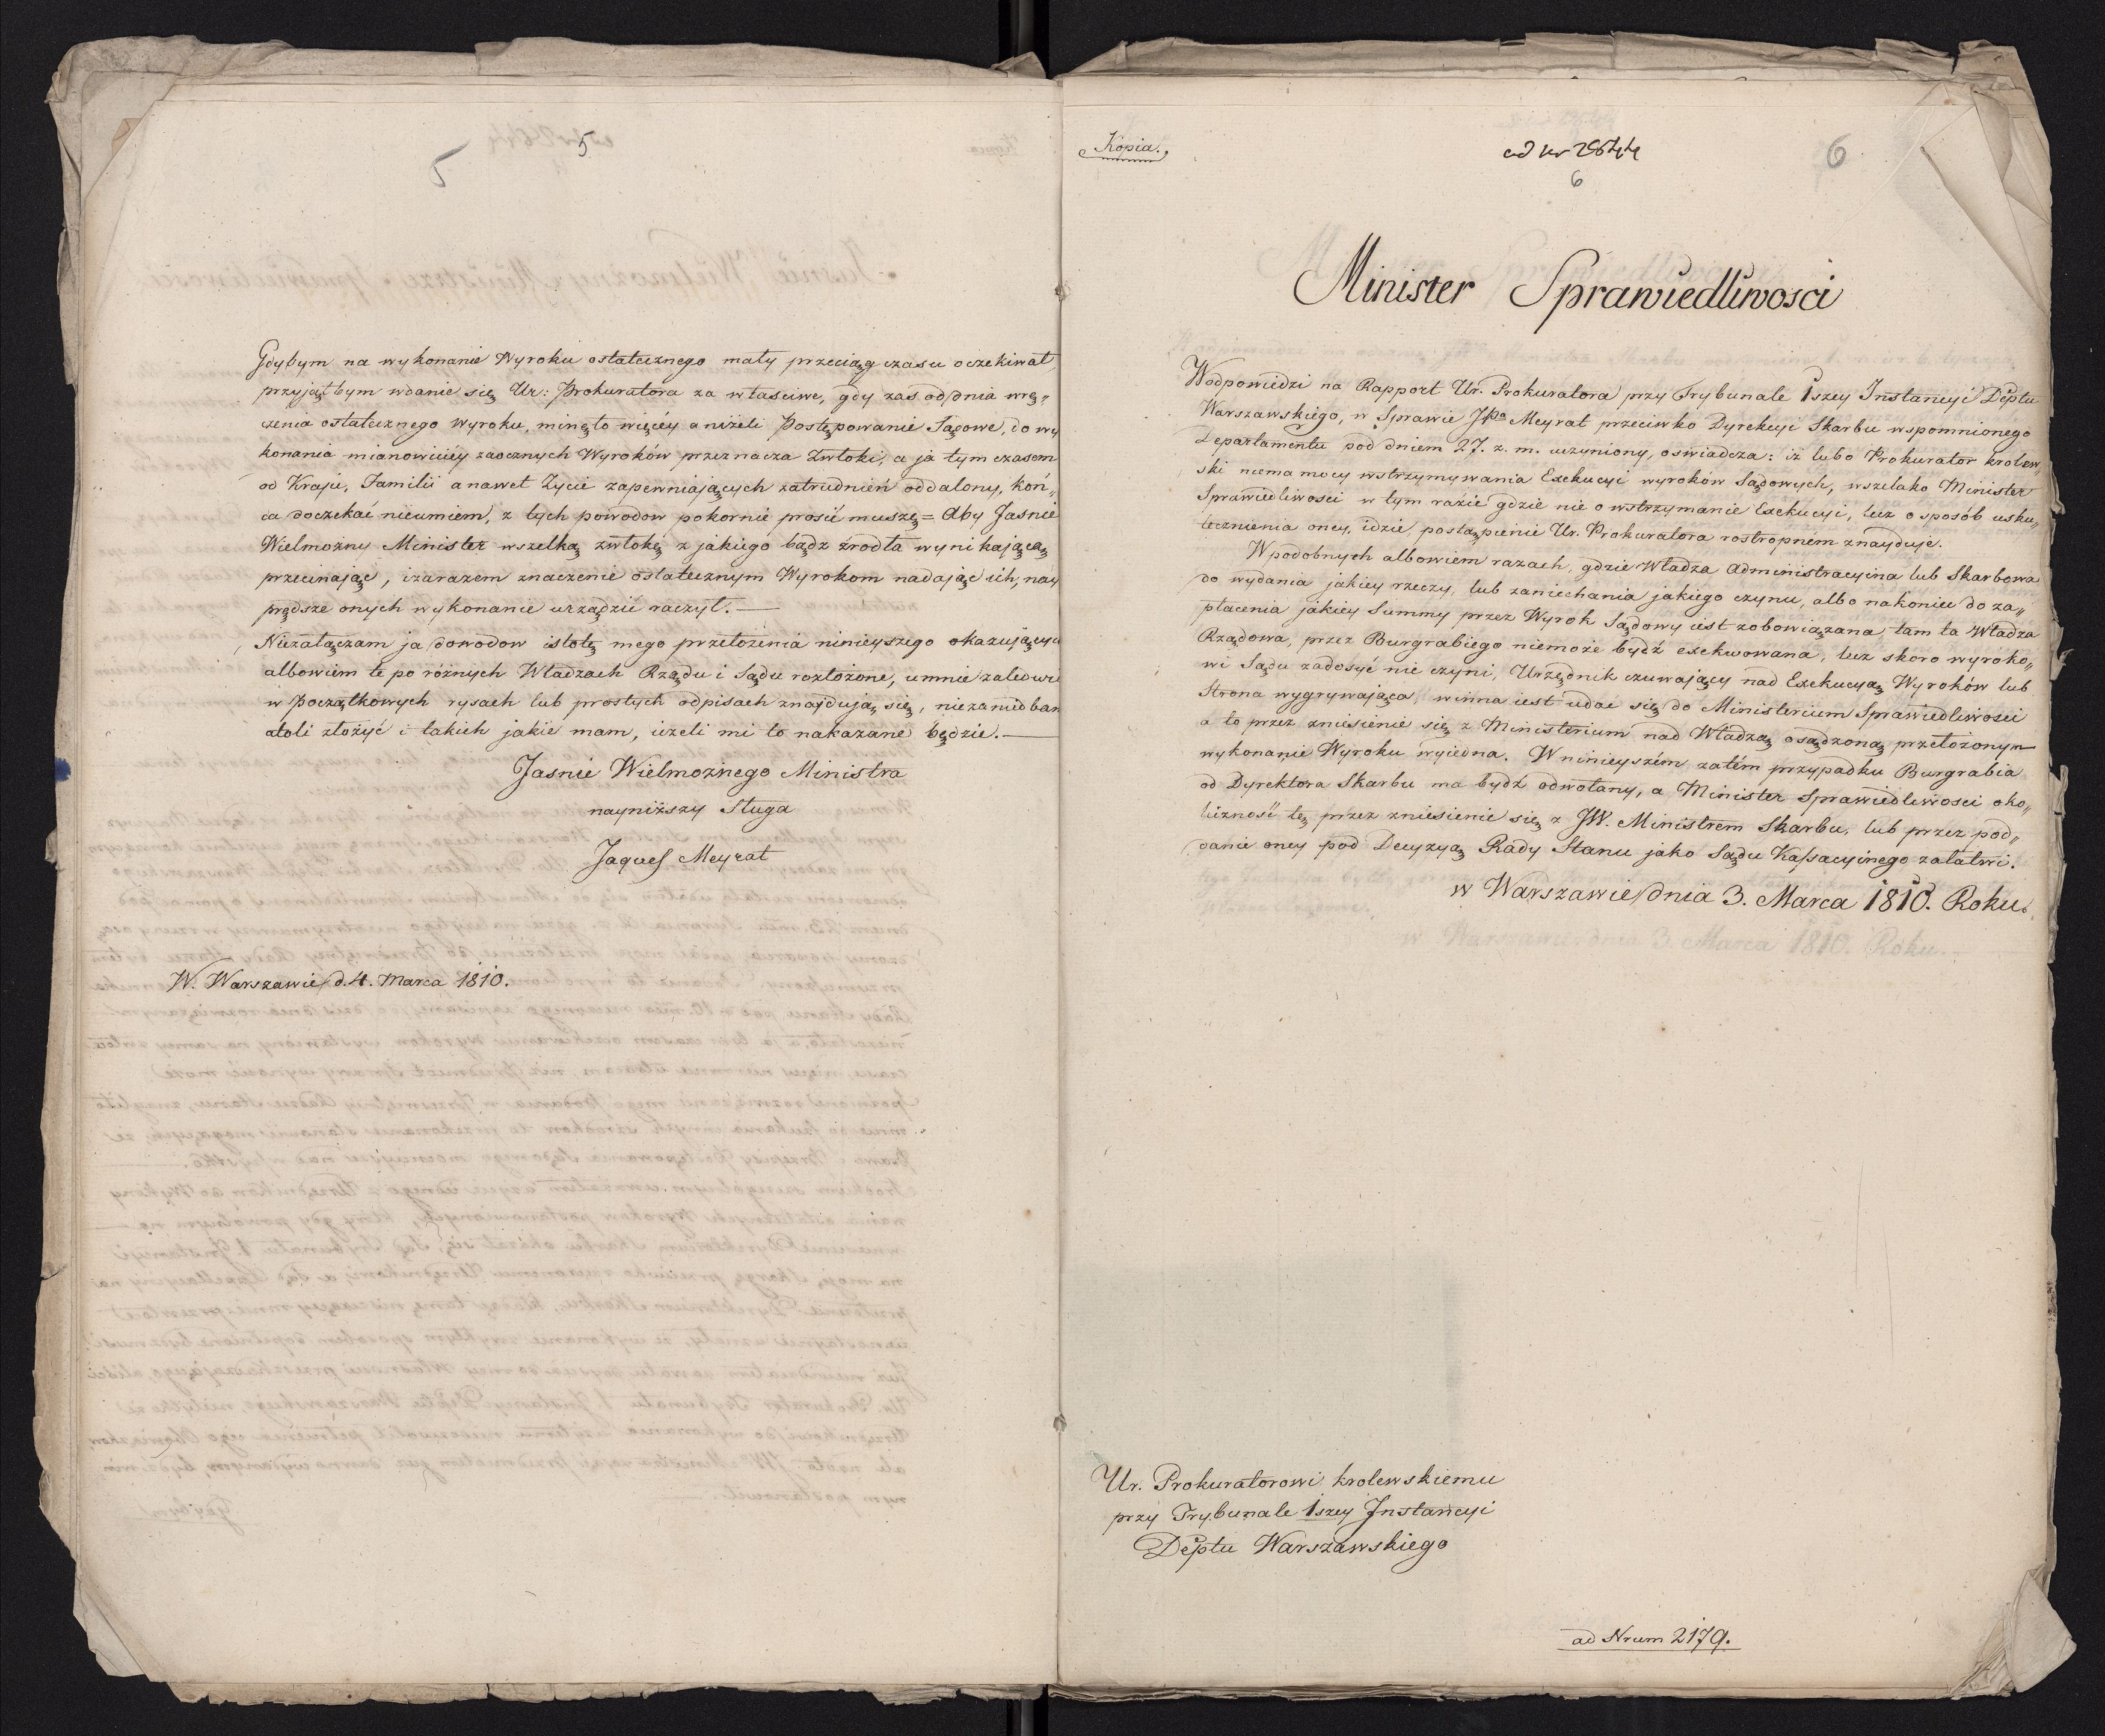 5
5
Gdybym na wykonanie Wyroku ostatecznego mały przeciąg czasu oczekiwał,
przyjąłbym wdanie się Ur: Prokuratora za właściwe, gdy zaś od dnia wrę„
czenia ostatecznego Wyroku, minęło więcéy aniżeli Postępowanie Sądowe, do wy
konania mianowicéy zaocznych Wyroków przeznacza Zwłoki, a ja tym czasem
od Kraju, Familii a nawet Życie zapewniających zatrudnień oddalony, koń„
ca doczekać nieumiem, z tych powodow pokornie prosić muszę = Aby Jasnie
Wielmożny Minister wszelką zwłokę z jakiego bądz źrodła wynikającą
przecinając, i zarazem znaczenie ostatecznym Wyrokom nadając ich, nay
prędsze onych wykonanie urządzić raczył. —
Niezałączam ja dowodow istotę mego przełożenia ninieyszego okazujących
albowiem te po różnych Władzach Rządu i Sądu rozłożone, umnie zaledwie
w Początkowych rysach lub prostych odpisach znajdują się, niezaniedbam
atoli złożyć i takich jakie mam, ieżeli mi to nakazane będzie. —
Jasnie Wielmożnego Ministra
nayniższy Sługa
Jaques Meyrat
W. Warszawie d. 4. Marca 1810.
Kopia.
ad Nr 2644
6
6
Minister Sprawiedliwosci
W odpowiedzi na Rapport Ur. Prokuratora przy Trybunale 1szey Instancyi Deptu
Warszawskiego, w Sprawie JPa Meyrat przeciwko Dyrekcyi Skarbu wspomnionego
Departamentu pod dniem 27. z. m. uczyniony, oswiadcza: iż lubo Prokurator krolew„
ski niema mocy wstrzymywania Exekucyi wyroków Sądowych, wszelako Minister
Sprawiedliwosci w tym razie gdzie nie o wstrzymanie Exekucyi, lecz o sposób usku„
tecznienia oney, idzie, postąpienie Ur. Prokuratora rostropnem znayduje.
W podobnych albowiem razach, gdzie Władza Administracyina lub Skarbowa
do wydania jakiey rzeczy, lub zaniechania jakiego czynu, albo nakoniec do za„
płacenia jakiey Summy przez Wyrok Sądowy iest zobowiązana, tam ta Władza
Rządowa, przez Burgrabiego niemoże bydź exekwowana, lecz skoro wyroko„
wi Sądu zadosyć nie czyni, Urzędnik czuwający nad Exekucyą Wyroków lub
Strona wygrywająca, winna iest udać się do Ministerium Sprawiedliwosci
a to przez zniesienie się z Ministerium nad Władzą osądzoną przełożonym
wykonanie Wyroku wyiedna. W ninieyszém zatém przypadku Burgrabia
od Dyrektora Skarbu ma bydź odwołany, a Minister Sprawiedliwosci oko„
liczność tę przez zniesienie się z JW. Ministrem Skarbu, lub przez pod„
danie oney pod Decyzyą Rady Stanu jako Sądu Kassacyinego załatwi.
w Warszawie dnia 3. Marca 1810. Roku.
Ur. Prokuratorowi krolewskiemu
przy Trybunale 1szey Instancyi
Deptu Warszawskiego
ad Nrum 2179.